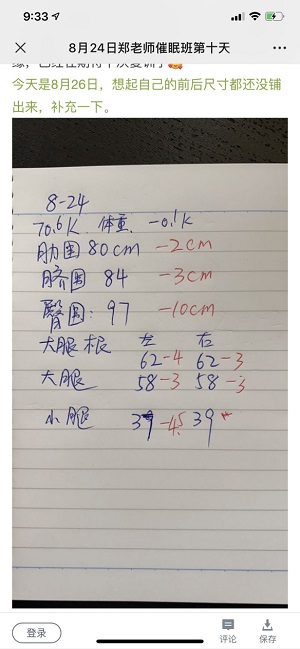 9:33
8月24日郑老师催眠班第十天
今天是8月26日，想起自己的前后尺寸都还没铺
出来，补充一下。
8-24
70.6K 体重 -0.1K
肋围 80cm -2cm
脐围 84 -3cm
臀围: 97 -10cm
大腿根 左 右
62-4 62-3
大腿 58-3 58-3
小腿 39-4.5 39
登录 评论 保存